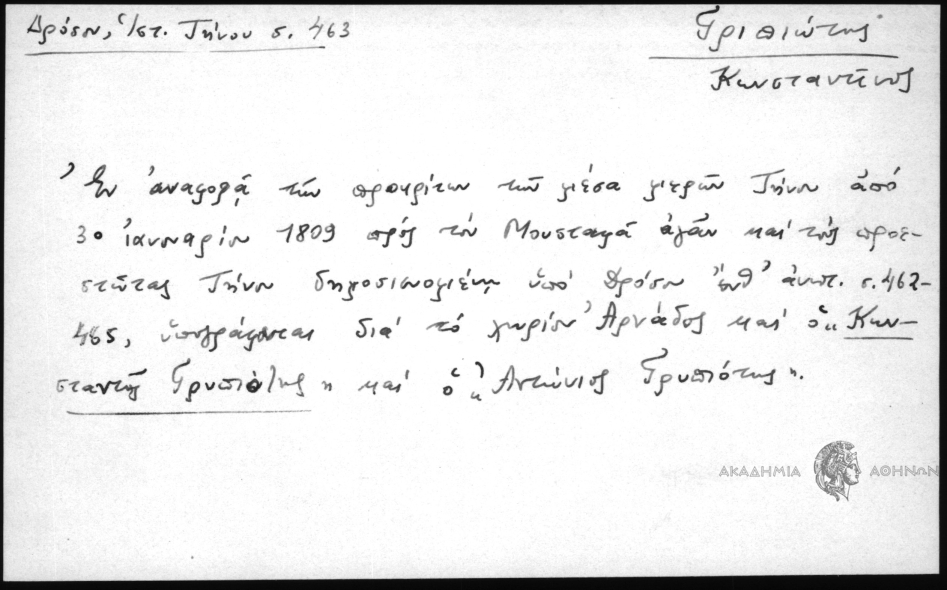 Δρόσου, Ἱστ. Τήνου σ. 463
Γριπιώτης
Κωνσταντῖνος
Ἐν ἀναφορᾷ τῶν προκρίτων τῶν μέσα μερῶν Τήνου ἀπό
30 Ἰανουαρίου 1809 πρός τόν Μουσταφᾶ ἀγᾶν καί τούς προε-
στῶτας Τήνου δημοσιευομένῃ ὑπό Δρόσου ἔνθ' ἀνωτ. σ. 462-
465, ὑπογράφονται διά τό χωρίον Ἀρνάδος καί ὁ « Κων-
σταντῆς Γρυπιότης » καί ὁ « Ἀντώνιος Γρυπιότης ».
ΑΚΑΔΗΜΙΑ ΑΘΗΝΩΝ